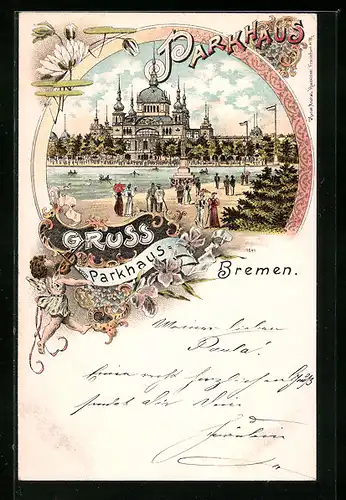 PARKHAUS
GRUSS
Parkhaus
Bremen.
Meiner lieben
Paula!
Einen recht herzlichen Gruß
sendet dir Dein